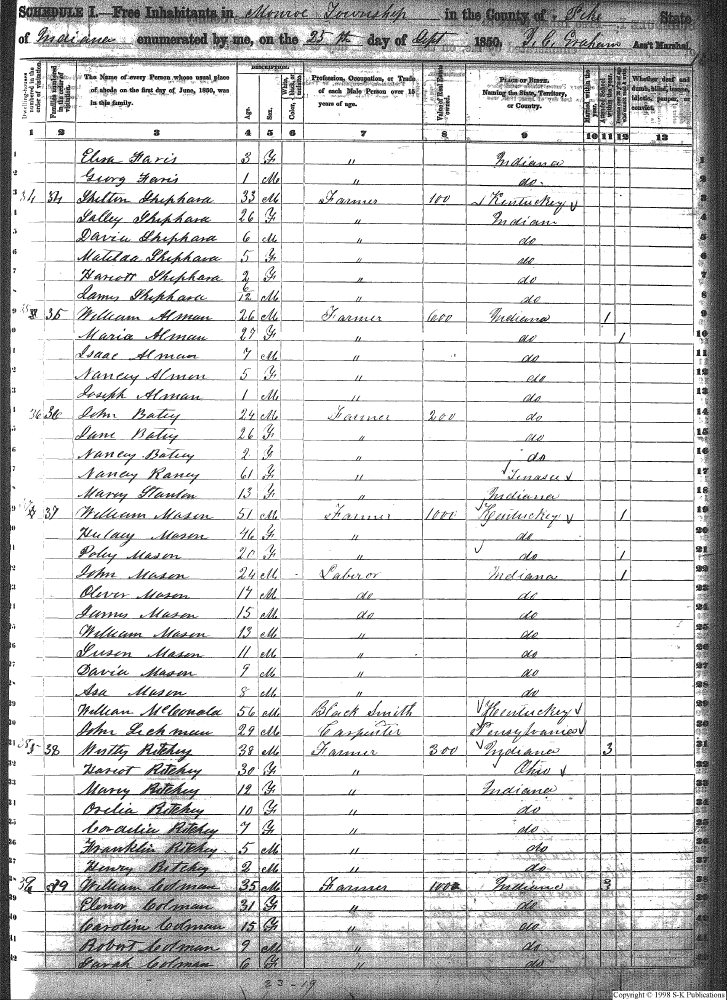 SCHEDULE I.—Free Inhabitants in Monroe Township in the County of Pike State
of Indiana enumerated by me, on the 25th day of Sept 1850, T. C. Graham Ass't Marshal.
Dwelling-houses numbered in the order of visitation.
Families numbered in the order of visitation.
The Name of every Person whose usual place of abode on the first day of June, 1850, was in this family.
DESCRIPTION.
Age.
Sex.
Color, White, black, or mulatto.
Profession, Occupation, or Trade of each Male Person over 15 years of age.
Value of Real Estate owned.
PLACE OF BIRTH. Naming the State, Territory, or Country.
Married within the year.
Whether deaf and dumb, blind, insane, idiotic, pauper, or convict.
1 2 3 4 5 6 7 8 9 10 11 12 13
1 Elisa Haris 3 F " Indiana
2 Georg Haris 1 M " do
3 34 34 Shelton Shiphard 33 M Farmer 100 Kentuckey
4 Salley Shiphard 26 F " Indian
5 David Shiphard 6 M " do
6 Matilda Shiphard 5 F " do
7 Hariott Shiphard 2 F " do
8 James Shiphard 6/12 M " do
9 35 35 William Alman 26 M Farmer 600 Indiana 1
10 Maria Alman 27 F " do 1
11 Isaac Alman 7 M " do
12 Nancy Almon 5 F " do
13 Joseph Alman 1 M " do
14 36 36 John Batey 24 M Farmer 200 do
15 Jane Batey 26 F " do
16 Nancy Batey 2 F " do
17 Nancy Raney 61 F " Tenasee
18 Marey Stanton 13 F " Indiana
19 37 William Mason 51 M Farmer 1000 Kentuckey 1
20 Huldey Mason 46 F " do
21 Poley Mason 20 F " do 1
22 John Mason 24 M Laberor Indiana 1
23 Oliver Mason 17 M do do
24 James Mason 15 M do do
25 William Mason 13 M " do
26 Suson Mason 11 M " do
27 David Mason 9 M " do
28 Asa Mason 8 M " do
29 William McDonald 56 M Black Smith Kentuckey
30 John Leekman 29 M Carpenter Pensylvania
31 38 Westly Ritchey 38 M Farmer 300 Indiana 3
32 Hariot Ritchey 30 F " Ohio
33 Marey Ritchey 12 F " Indiana
34 Orelia Ritchey 10 F " do
35 Cordelia Ritchey 7 F " do
36 Franklin Ritchey 5 M " do
37 Henry Ritchey 2 M " do
38 39 39 William Colman 35 M Farmer 1000 Indiana
39 Elenor Colman 31 F " do
40 Caroline Colman 15 F " do
41 Robort Colman 9 M " do
42 Sarah Colman 6 F " do
23-19
Copyright © 1998 S-K Publications